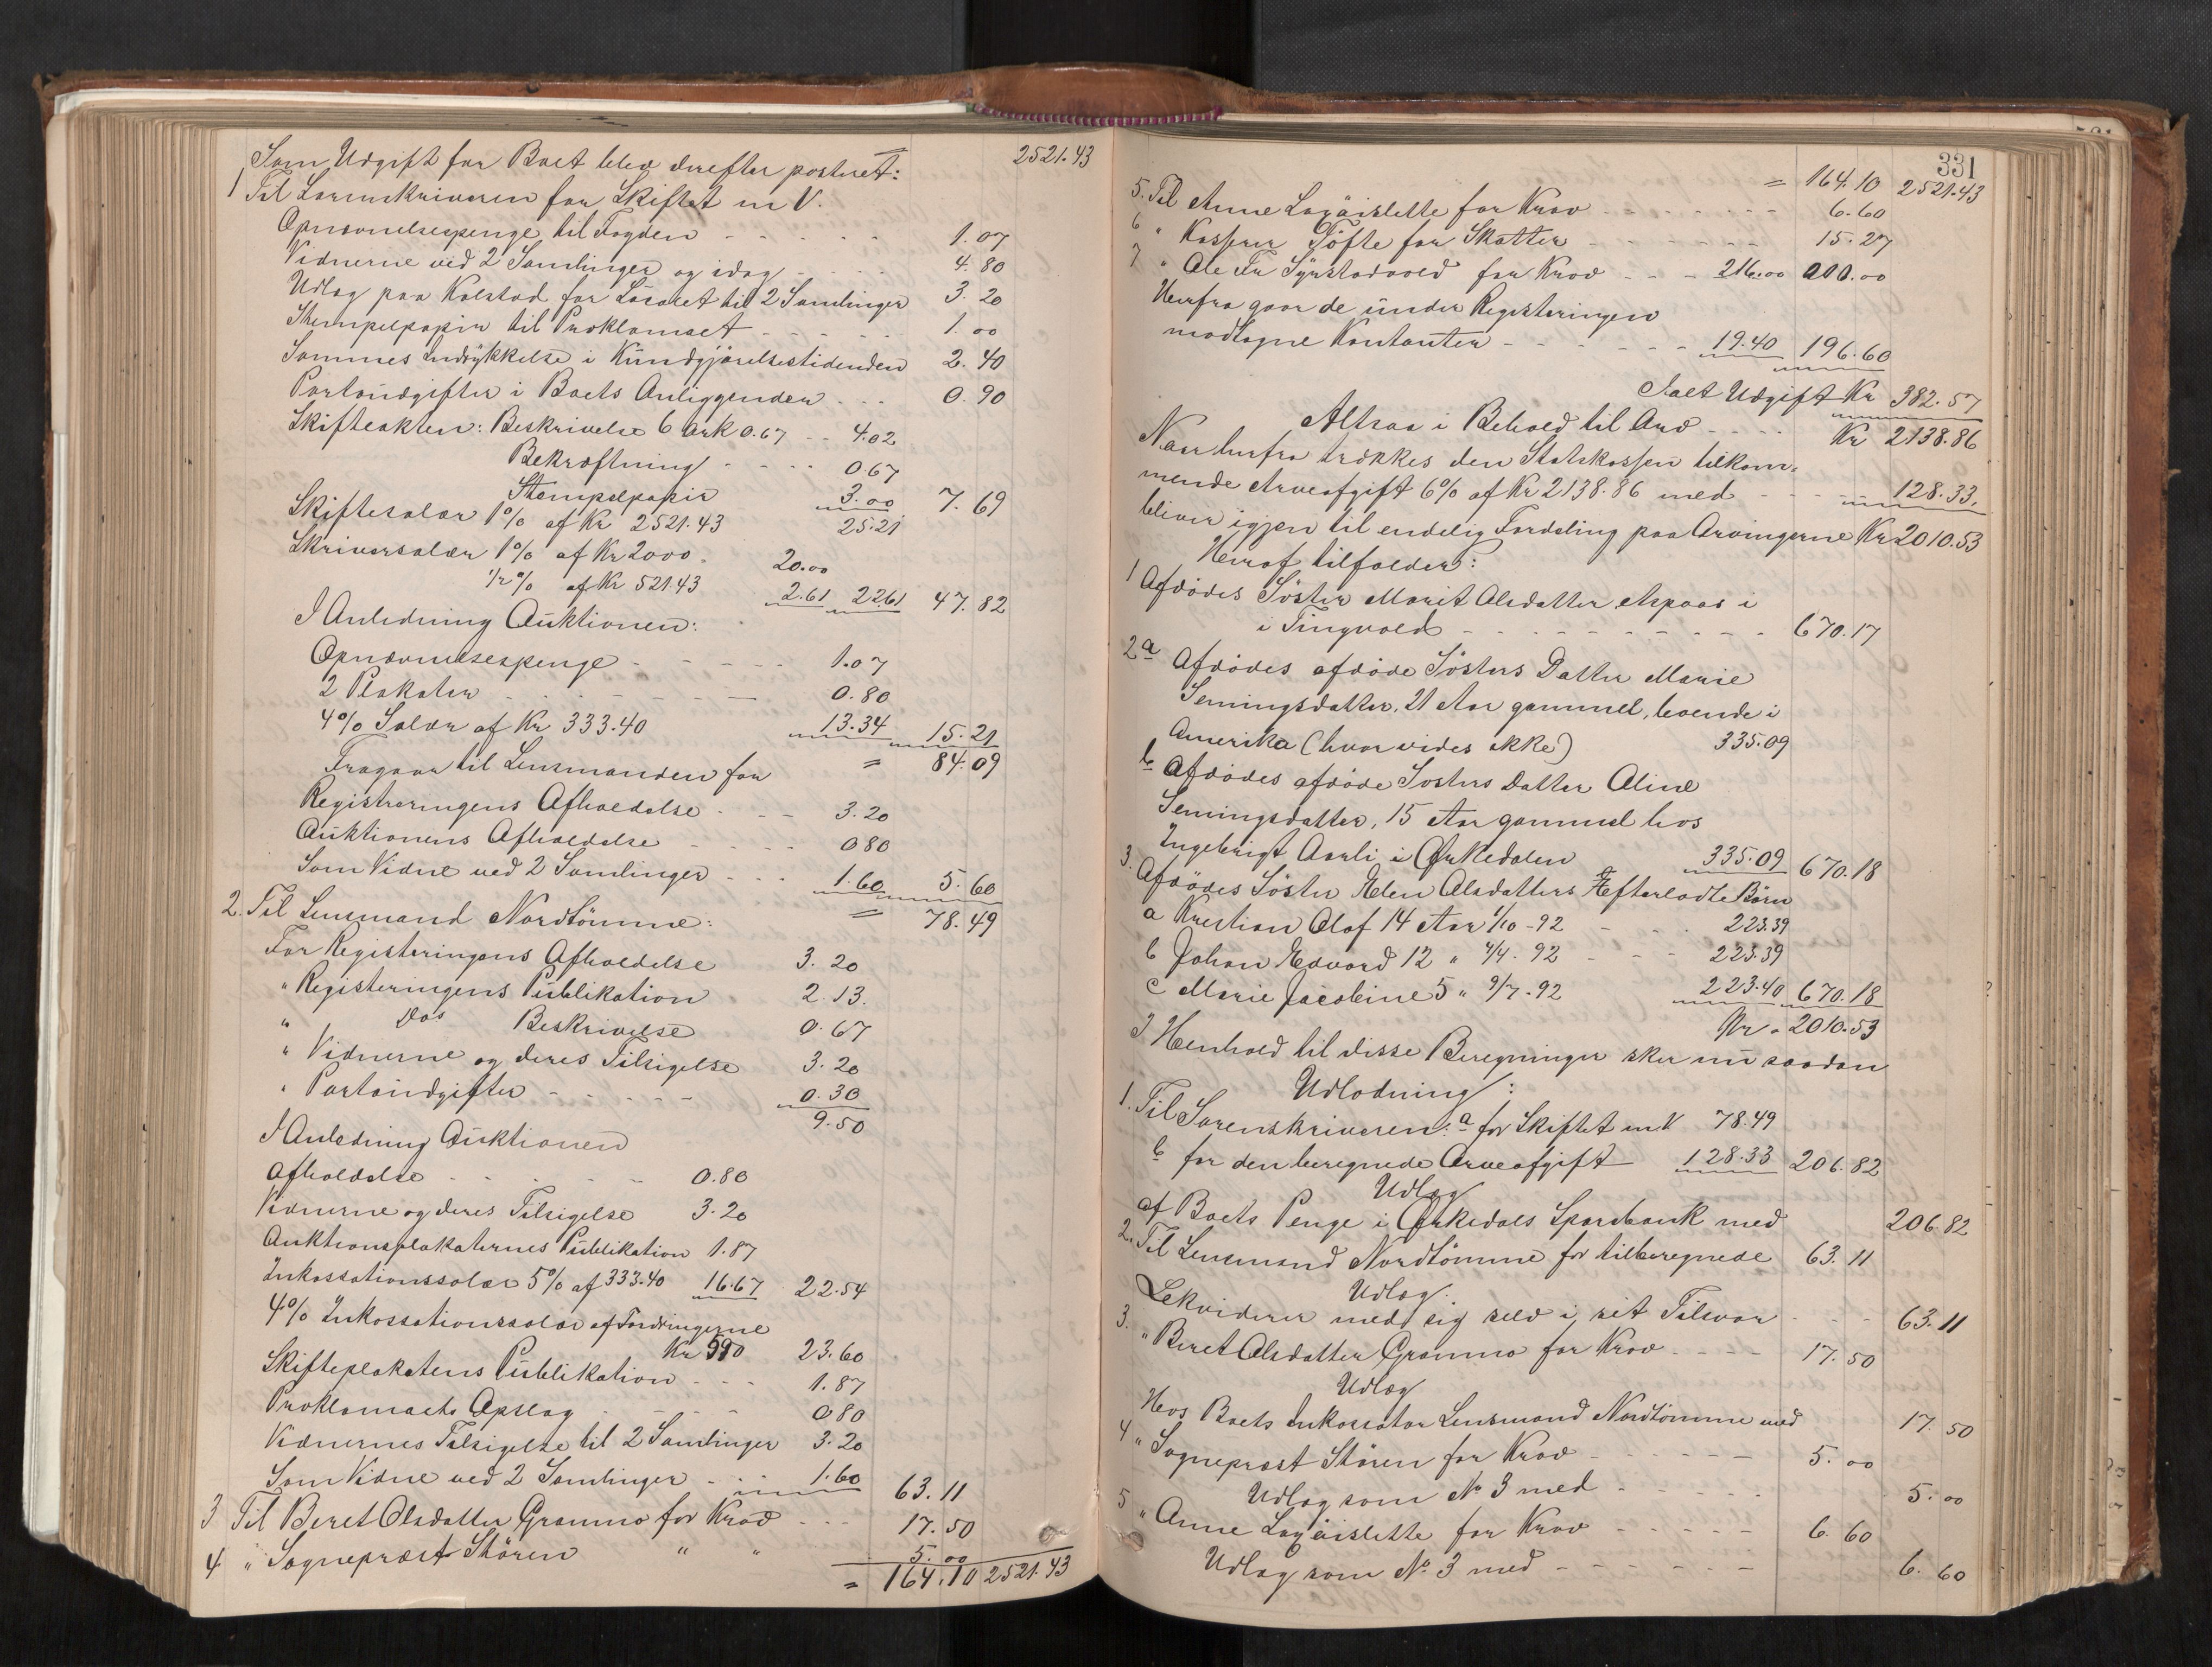 2521.43
Som Udgift for Boet blev derefter posteret:
1 Til Sorenskriveren for Skiftet m V.
Opnævnelsespenge til Fogden - - - - 1.07
Vidnerne ved 2 Samlinger og idag - - - 4.80
Udlæg paa Kolstad for Localet til 2 Samlinger 3.20
Stempelpapir til Proklamaet - - - - 1.00
Sammes Indrykkelse i Kundgjørelsestidenden 2.40
Portoudgifter i Boets Anliggender - - - 0.90
Skifteakten: Beskrivelse 6 Ark 0.67 - - 4.02
Bekræftning - - - - 0.67
Stempelpapir 3.00 7.69
Skiftesalær 1% af Kr 2521.43 25.21
Skriversalær 1% af Kr 2000. 20.00
1/2 % af Kr 521.43 2.61 22.61 47.82
I Anledning Auktionen:
Opnævnelsespenge - - - - 1.07
2 Plakater - - - - 0.80
4% Salær af Kr 333.40 13.34 15.21
= 84.09
Fragaar til Lensmanden for
Registreringens Afholdelse - - - 3.20
Auktionens Afholdelse - - - - 0 80
Som Vidne ved 2 Samlinger - - - 1.60 5.60
= 78.49
2. Til Lensmand Nordtømme:
For Registeringens Afholdelse 3.20
" Registeringens Publikation 2.13.
" Dos Beskrivelse 0.67
" Vidnerne og deres Tilsigelse 3.20
" Portoudgifter - - - - - 0.30
9.50
I Anledning Auktionen
Afholdelse - - - - - 0.80
Vidnerne og deres Tilsigelse 3.20
Auktionsplakaternes Publikation 1.87
Inkassationssalær 5% af 333.40 16.67 22.54
4% Inkassationssalær af Fordringerne
Kr 590 23.60
Skifteplakatens Publikation - - - 1.87
Proklamaets Opslag - - - - 0 80
Vidnernes Tilsigelse til 2 Samlinger 3.20
Som Vidne ved 2 Samlinger - - - 1.60 63.11
3 Til Beret Olsdatter Gramme for Krav - - - 17.50
4 " Sognepræst Støren " " 5.00
= 164.10 2521.43
331
= 164.10 2521.43
5. Til Anne Løgøislette for Krav - - - - - 6.60
6 " Kasserer Tøfte for Skatter - - - - - 15.27
7 " Ole Fr Syrstadvold for Krav - - - 216.00 200.00
Herfra gaar de under Registeringen
modtagne Kontanter - - - - - - 19.40 196.60
Ialt Udgift Kr 382.57
Altsaa i Behold til Arv - - - - Kr 2138.86
Naar herfra trækkes den Statskassen tilkom-
mende Arveafgift 6% af Kr 2138.86 med - - - - 128.33.
bliver igjen til endelig Fordeling paa Arvingerne Kr 2010.53
Heraf tilfalder:
1 Afdødes Søster Marit Olsdatter Aspaas i
i Tingvold - - - - - - - - - 670.17
2a Afdødes afdøde Søsters Datter Marie
Semingsdatter, 21 Aar gammel, boende i
Amerika (hvor vides ikke) 335.09
b Afdødes afdøde Søsters Datter Oline
Semingsdatter, 15 Aar gammel hos
Ingebrigt Aarli i Ørkedalen 335.09 670.18
3. Afdødes Søster Elen Olsdatters Efterladte Børn
a Krestian Olaf 14 Aar 1/10 - 92 - - - 223.39
b Johan Edvard 12 " 4/4 - 92 - - - 223.39
c Marie Jacobine 5 " 9/7 - 92 223.40 670.18
Kr. 2010.53
I Henhold til disse Beregninger sker nu saadan
Udlodning:
1. Til Sorenskriveren: a for Skiftet m.V 78.49
b for den beregnede Arveafgift 128.33 206.82
Udlæg
af Boets Penge i Ørkedals Sparebank med 206.82
2. Til Lensmand Nordtømme for tilberegnede 63.11
Udlæg.
Lekviderer med sig selv i sit Tilsvar - - - 63.11
3. " Beret Olsdatter Gramme for Krav - - - - 17.50
Udlæg
Hos Boets Inkassator Lensmand Nordtømme med 17.50
4 " Sognepræst Støren for Krav - - - - - 5.00
Udlæg som No 3 med - - - - - 5.00
5 " Anne Løgøislette for Krav - - - - - 6.60
Udlæg som No 3 med - - - - - - 6.60